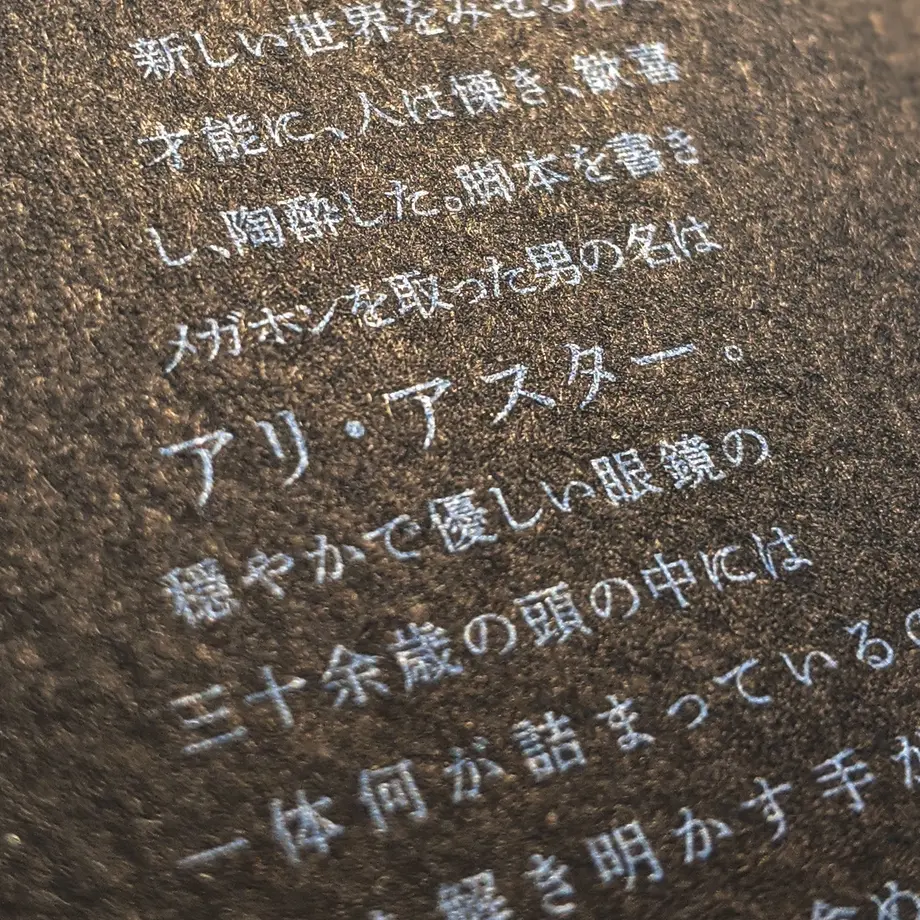 新しい世界をみせる
才能に、人は慄き、歓喜
し、陶酔した。脚本を書き
メガホンを取った男の名は
アリ・アスター。
穏やかで優しい眼鏡の
三十余歳の頭の中には
一体何が詰まっているの
解き明かす手が
ため